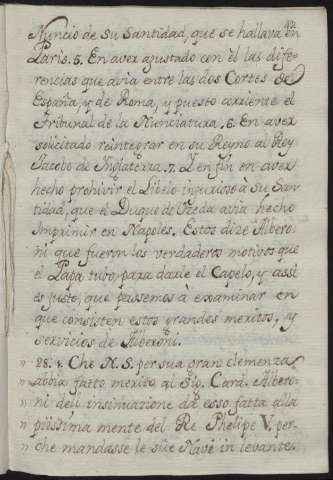 Nuncio de su Santidad, que se hallava en
Paris. 5. En aver ajustado con èl las dife-
rencias que avia entre las dos Cortes de
España, y de Roma, y puesto corriente el
Tribunal de la Nunciatura. 6. En aver
solicitado reintegrar en su Reyno al Rey
Jacobo de Inglaterra. 7. Y en fin en aver
hecho prohivir el Libelo injurioso a Su San-
tidad, que el Duque de Uzeda avia hecho
Imprimir en Napoles. Estos dize Albero-
ni que fueron los verdaderos motivos que
el Papa tuvo, para darle el Capelo, y assi
es justo, que passemos à examinar en
que consisten estos grandes meritos, y
servicios de Alberoni.
" 28. Che N. S. per sua gran clemenza
" abbia fatto merito al Sig. Card. Albero-
" ni dell' insinuazione da esso fatta alla
" piissima mente del Re Phelipe V. per-
" che mandasse le sue Navi in levante.